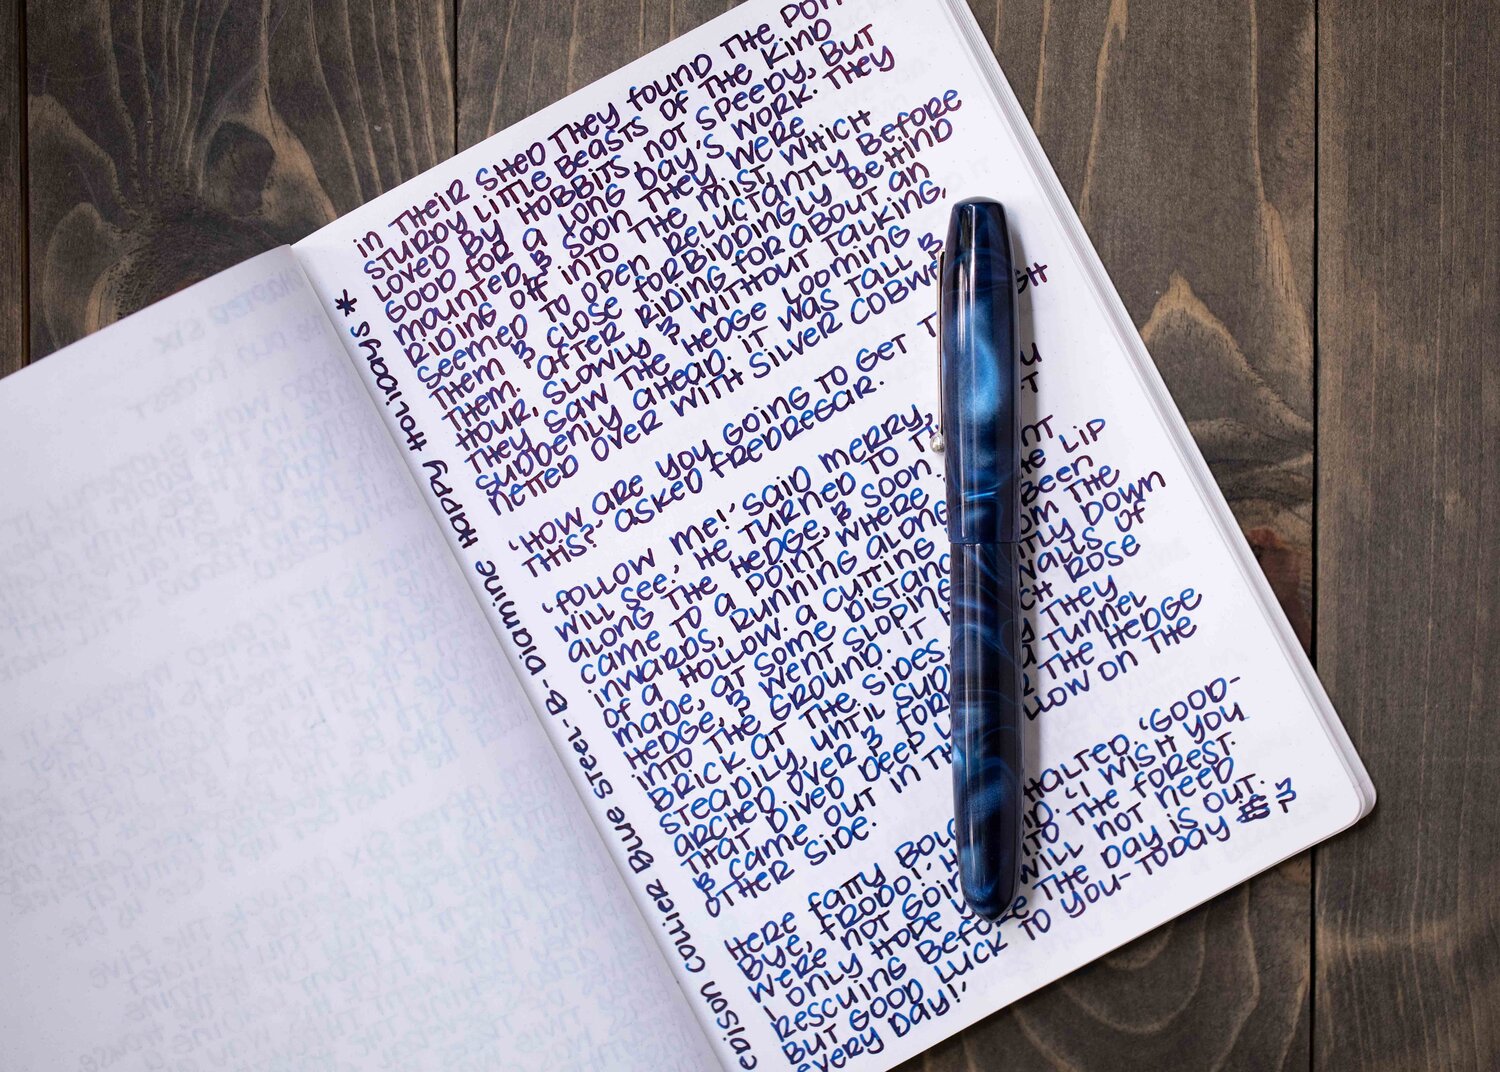 in THEIR SHED THEY FOUND THE
STURDY LITTLE BEASTS OF THE KIND
LOVED BY HOBBITS, NOT SPEEDY, BUT
GOOD FOR A LONG DAY'S WORK. THEY
MOUNTED, & SOON THEY WERE
RIDING OFF INTO THE MIST, WHICH
SEEMED TO OPEN RELUCTANTLY BEFORE
THEM & CLOSE FORBIDDINGLY BEHIND
THEM. AFTER RIDING FOR ABOUT AN
HOUR, SLOWLY & WITHOUT TALKING,
THEY SAW THE HEDGE LOOMING
SUDDENLY AHEAD. IT WAS TALL &
NETTED OVER WITH SILVER
'HOW ARE YOU GOING TO GET
THIS?' ASKED FREDREGAR.
'FOLLOW ME!' SAID MERRY,
WILL SEE.' HE TURNED TO
ALONG THE HEDGE, & SOON
CAME TO A POINT WHERE LIP
INWARDS, RUNNING ALONG BEEN
OF A HOLLOW. A CUTTING THE
MADE, AT SOME DOWN
HEDGE, & WENT OF
INTO THE GROUND. IT ROSE
BRICK AT THE SIDES, THEY
STEADILY, UNTIL TUNNEL
ARCHED OVER & THE HEDGE
THAT DIVED DEEP ON THE
& CAME OUT IN
OTHER SIDE.
HERE FATTY HALTED. 'GOOD-
BYE, FRODO!' 'I WISH YOU
WERE NOT THE FOREST.
I ONLY HOPE WILL NOT NEED
RESCUING BEFORE THE DAY IS OUT.
BUT GOOD LUCK TO YOU- TODAY &
EVERY DAY!'
EDISON COLLIER BLUE STEEL - B - DIAMINE HAPPY HOLIDAYS *